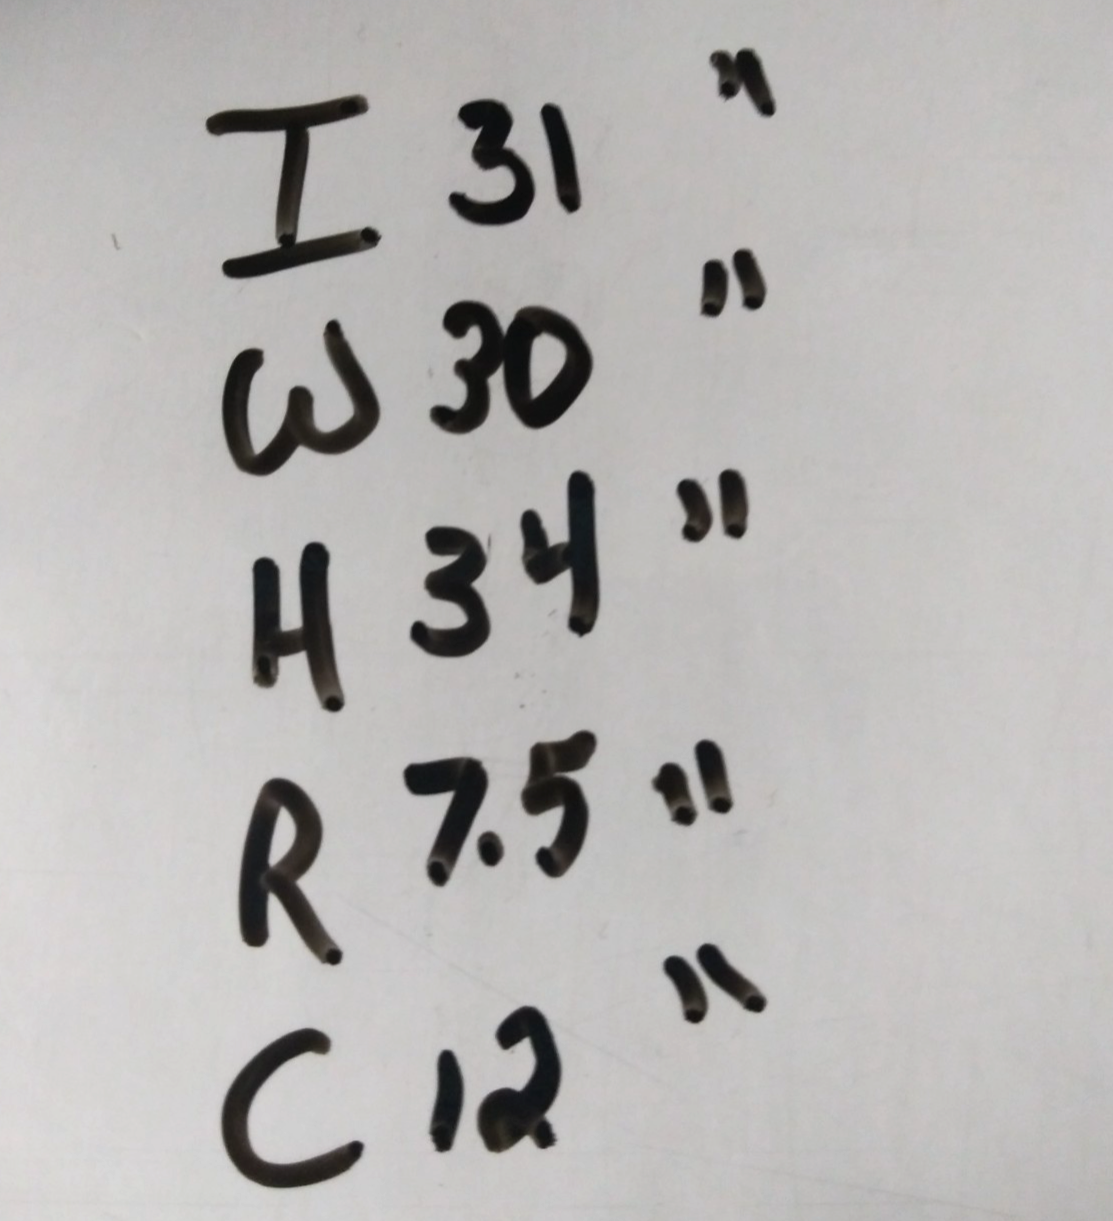 I 31 "
W 30 "
H 34 "
R 7.5 "
C 12 "